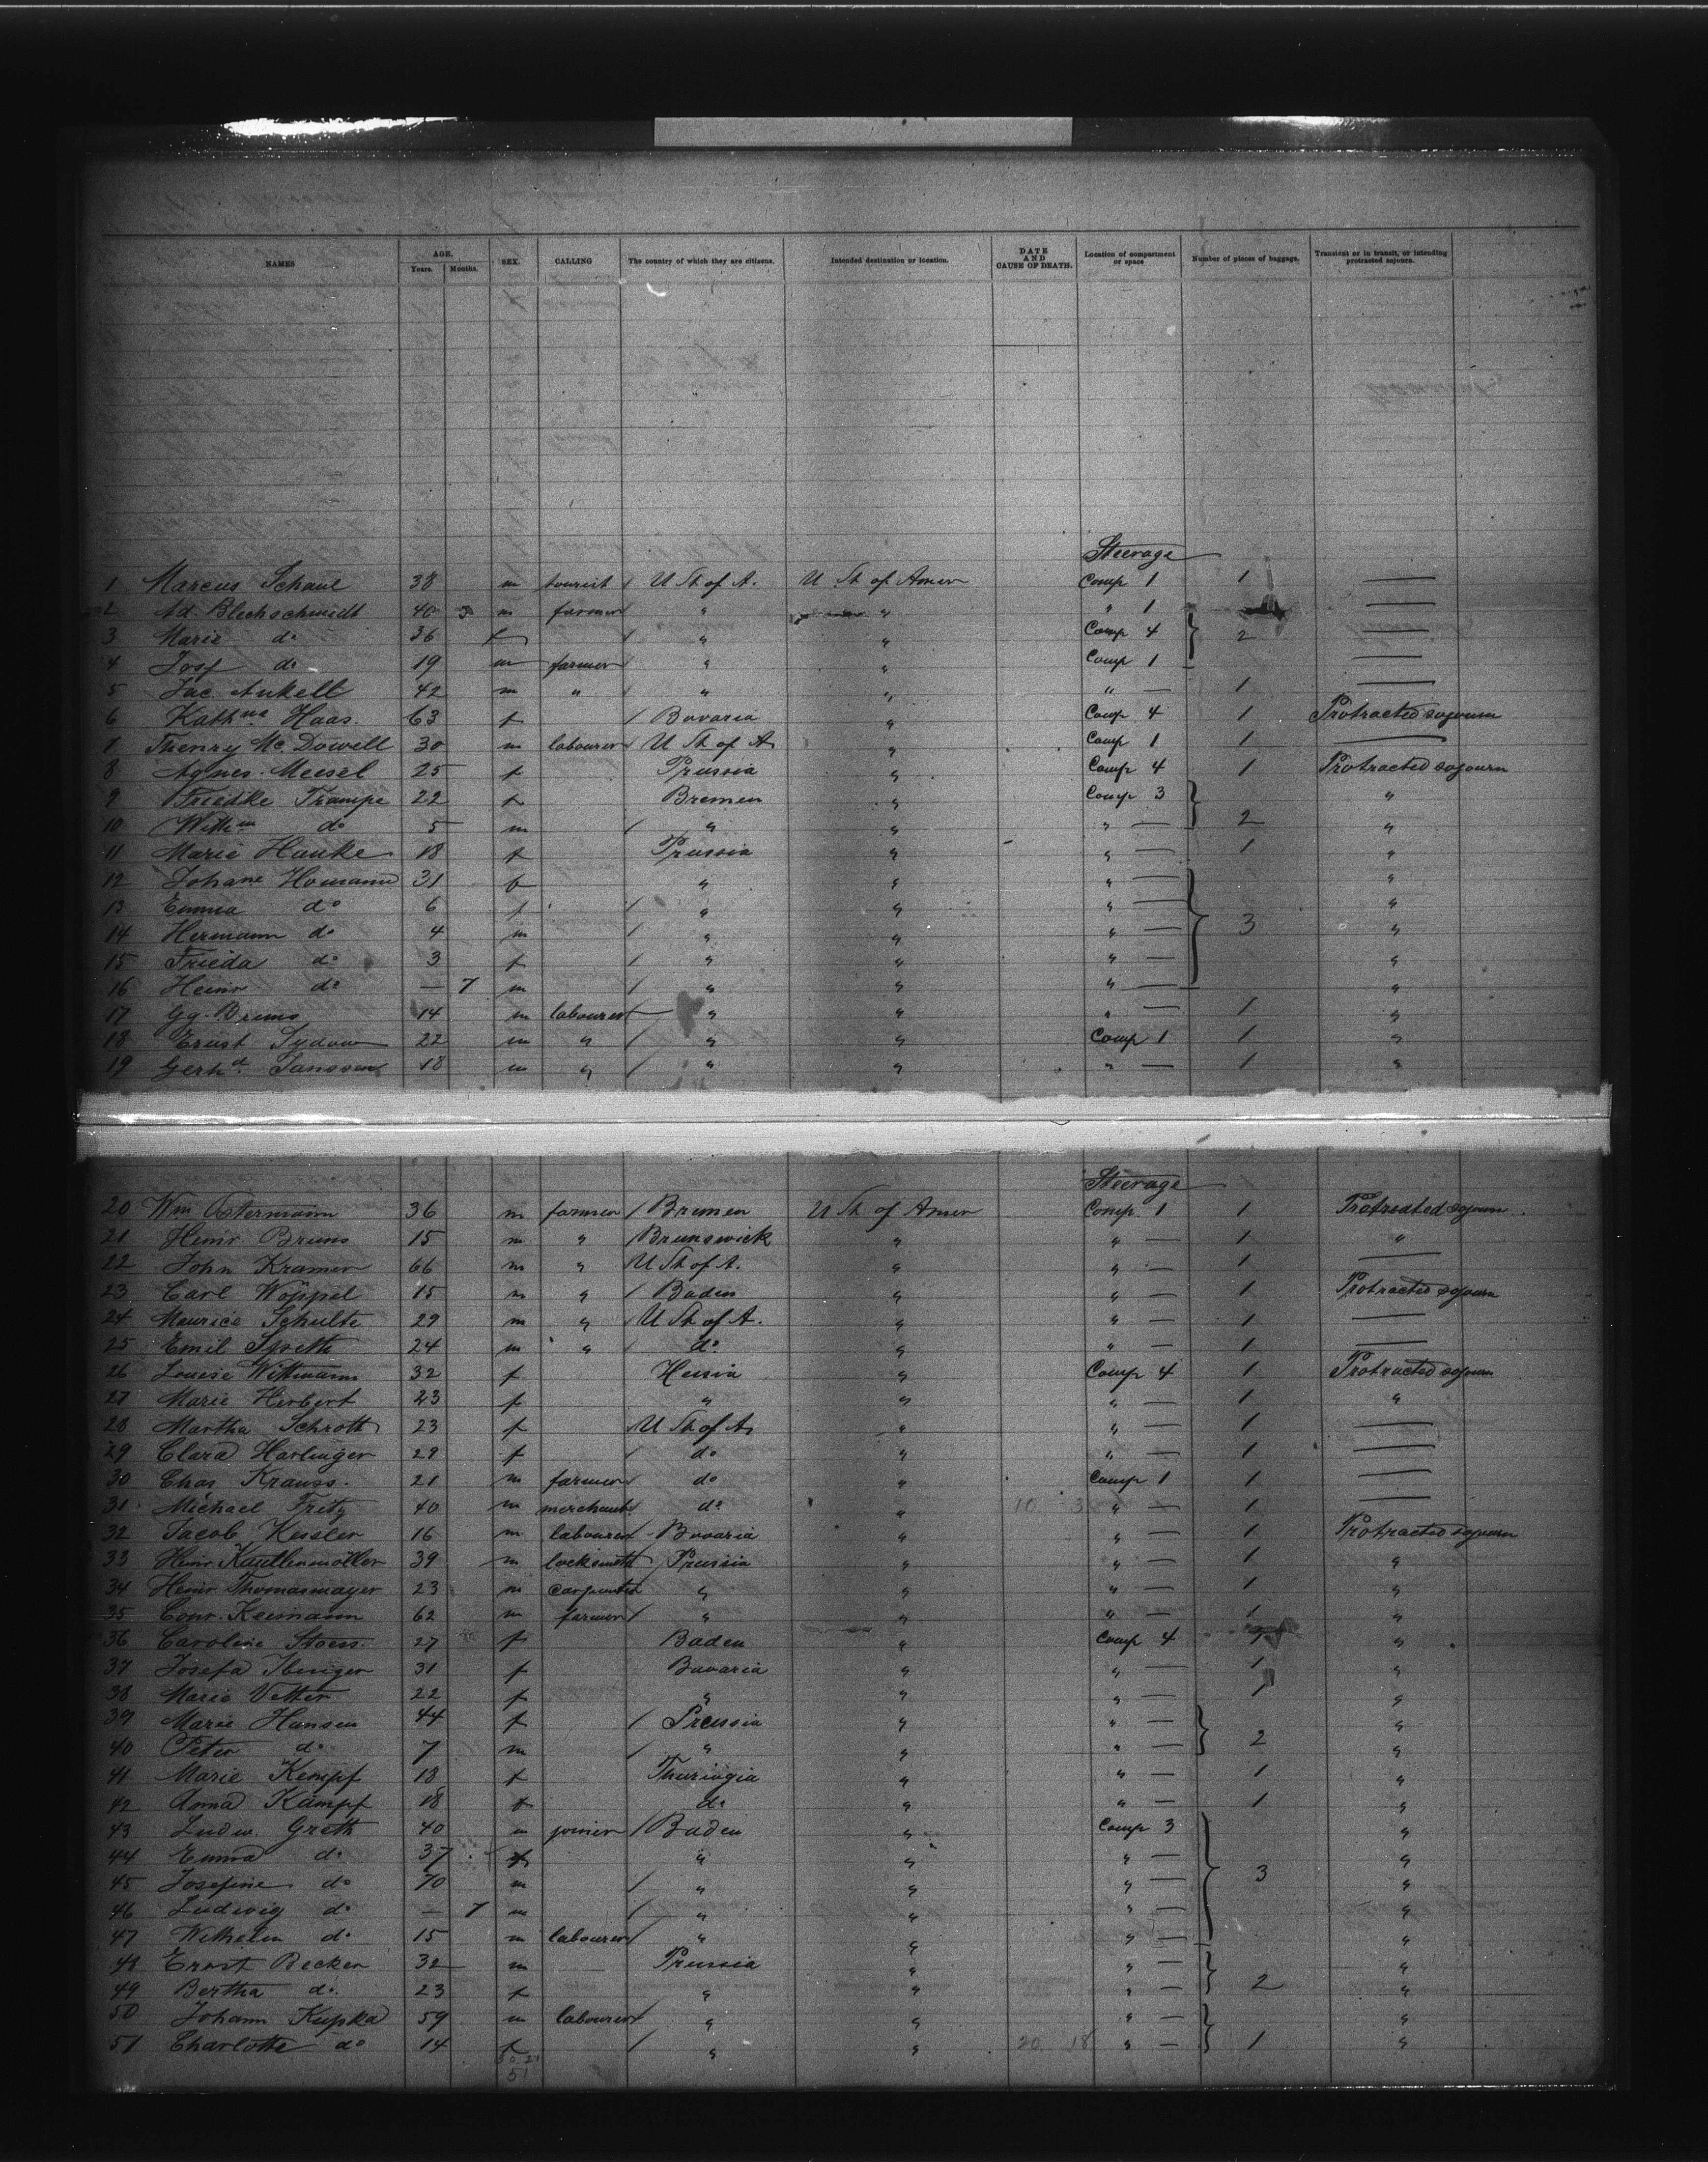 NAMES AGE. Years. Months. SEX. CALLING The country of which they are citizens. Intended destination or location. DATE AND CAUSE OF DEATH. Location of compartment or space Number of pieces of baggage. Transient or in transit, or intending protracted sojourn.
Steerage
1 Marcus Schaul 38 m tourist / U St of A. U St of Amer Comp 1 1 —
2 Ad. Blechschmidt 40 m farmer " " " 1 —
3 Marie do 36 f / " " Comp 4 2 —
4 Josf do 19 m farmer / " " Comp 1 —
5 Jac. Ankelt 42 m " / " " " — 1 —
6 Kathna Haas. 63 f / Bavaria " Comp 4 1 Protracted sojourn
7 Thenry Mc Dowell 30 m labourer / U St of A " Comp 1 1 —
8 Agnes Meesel 25 f Prussia " Comp 4 1 Protracted sojourn
9 Friedke Trampe 22 f Bremen " Comp 3 "
10 Willm do 5 m / " " " — 2 "
11 Marie Hanke 18 f Prussia " " — 1 "
12 Johane Homann 31 f " " " — "
13 Emma do 6 f / " " " — "
14 Hermann do 4 m / " " " — 3 "
15 Frieda do 3 f / " " " — "
16 Heinr do — 7 m / " " " — "
17 Gg. Bruns 14 m labourer / " " " — 1 "
18 Ernst Sydow 22 m " / " " Comp 1 1 "
19 Gerhd. Janssen 18 m " / " " " — 1 "
Steerage
20 Wm Ostermann 36 m farmer / Bremen U St of Amer Comp. 1 1 Protracted sojourn
21 Heinr Bruns 15 m " / Brunswick " " — 1 "
22 John Kramer 66 m " / U St of A. " " — 1 —
23 Carl Wöppel 15 m " / Baden " " — 1 Protracted sojourn
24 Maurice Schulte 29 m " / U St of A. " " — 1 —
25 Emil Spreth 24 m " / do " " — 1 —
26 Louise Wittmann 32 f Hessia " Comp 4 1 Protracted sojourn
27 Marie Herbert 23 f " " " — 1 "
28 Martha Schroth 23 f U St of A " " — 1 —
29 Clara Harlinger 29 f / do " " — 1 —
30 Chas Krauss. 21 m farmer / do " Comp 1 1 —
31 Michael Fritz 40 m merchant do " 10 3 " — 1 —
32 Jacob Kessler 16 m labourer Bavaria " " — 1 Protracted sojourn
33 Heinr. Kauttenmöller 39 m locksmith Prussia " " — 1 "
34 Heinr. Thomasmayer 23 m carpenter " " " — 1 "
35 Conr. Keimann 62 m farmer / " " " — 1 "
36 Caroline Stoess 27 f Baden " Comp 4 1 "
37 Josefa Ibinger 31 f Bavaria " " — 1 "
38 Marie Vetter 22 f " " " — 1 "
39 Marie Hansen 44 f / Preussia " " — "
40 Peter do 7 m / " " " — 2 "
41 Marie Kempf 18 f Thuringia " " — 1 "
42 Anna Kämpf 18 f do " " — 1 "
43 Ludw. Greth 40 m joiner / Baden " Comp 3 "
44 Emma do 37 f " " " — "
45 Josefine do 70 m / " " " — 3 "
46 Ludwig do — 7 m / " " " — "
47 Wilhelm do 15 m labourer / " " " — "
48 Ernst Becker 32 m Prussia " " — "
49 Bertha do. 23 f " " " — 2 "
50 Johann Kupka 59 m labourer / " " " — "
51 Charlotte do 14 f / " " 20 18 " — 1 "
30 21
51